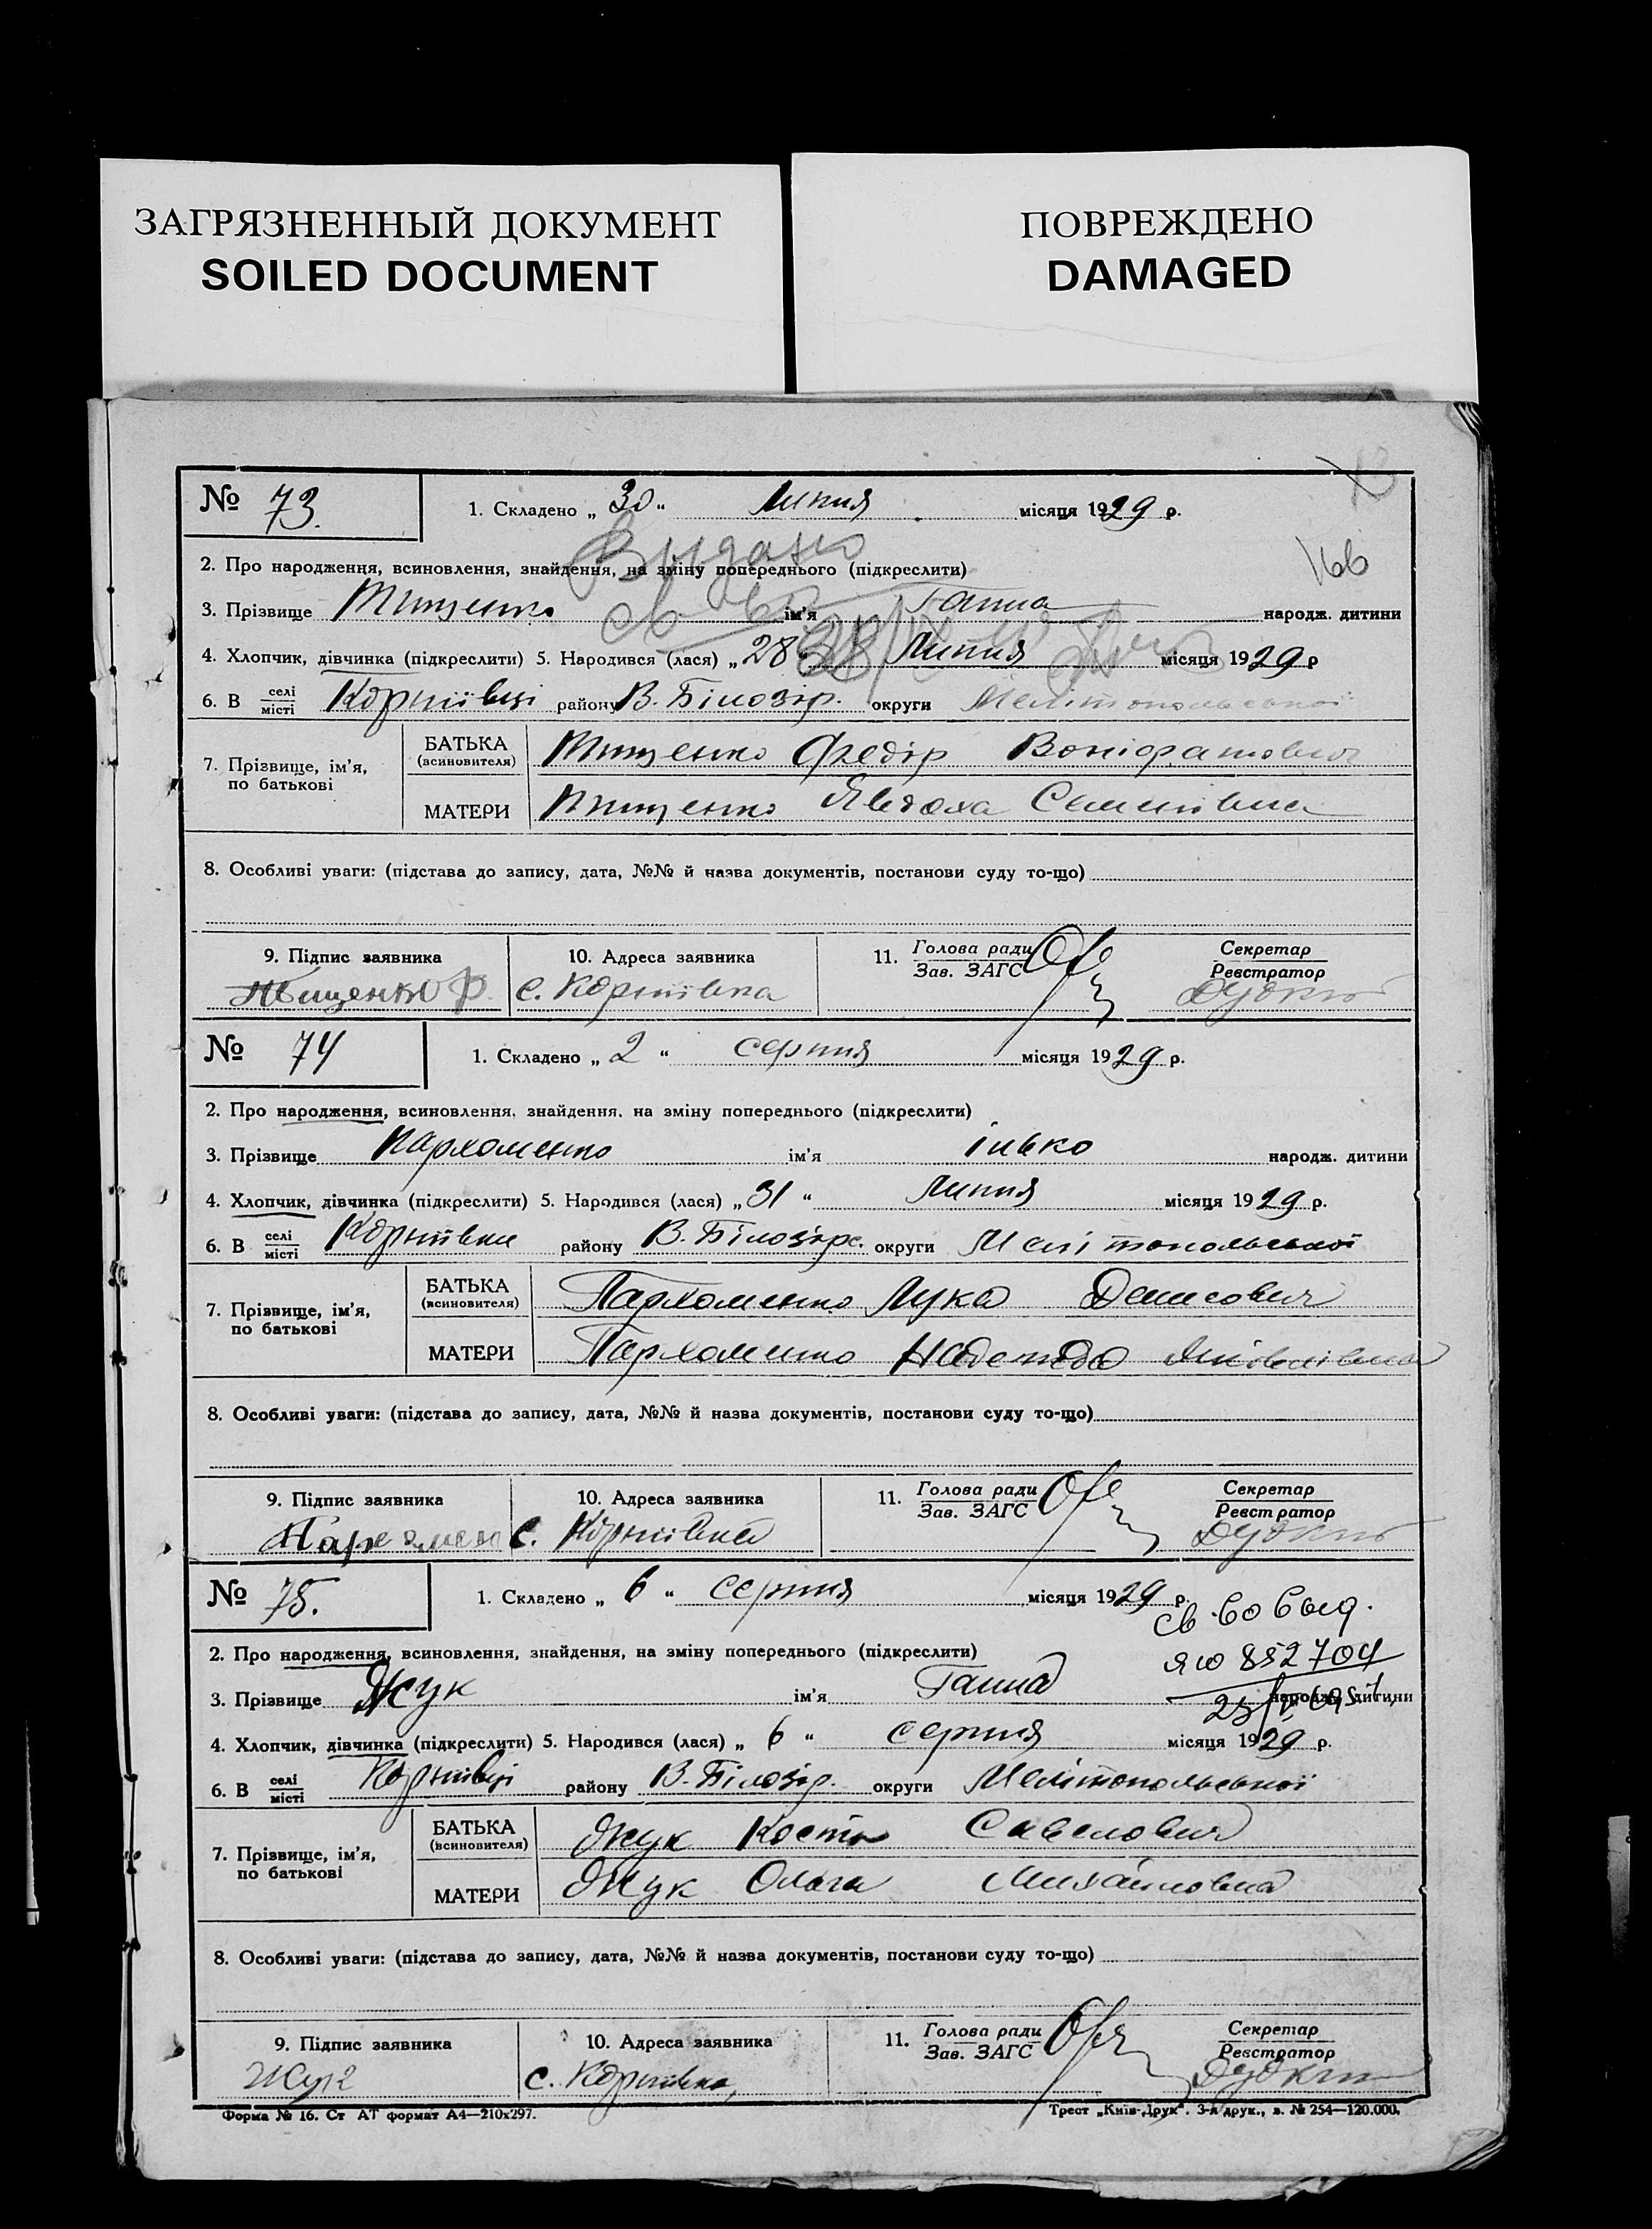 ЗАГРЯЗНЕННЫЙ ДОКУМЕНТ
SOILED DOCUMENT
ПОВРЕЖДЕНО
DAMAGED
№ 73. 1. Складено „ 30 “ Липня місяця 1929 р.
Видано
166
2. Про народження, всиновлення, знайдення, на зміну попереднього (підкреслити)
3. Прізвище Тищенко ім'я Ганна народж. дитини
4. Хлопчик, дівчинка (підкреслити) 5. Народився (лася) „ 28 “ Липня місяця 1929 р
6. В селі місті Корніївці району В. Білозір. округи Мелітопольської
7. Прізвище, ім'я, по батькові
БАТЬКА (всиновителя) Тищенко Федір Воніфатович
МАТЕРИ Тищенко Явдоха Семенівна
8. Особливі уваги: (підстава до запису, дата, №№ й назва документів, постанови суду то-що)
9. Підпис заявника 10. Адреса заявника 11. Голова ради Зав. ЗАГС Секретар Реєстратор
Тищенко Ф. с. Корніївка
№ 74 1. Складено „ 2 “ серпня місяця 1929 р.
2. Про народження, всиновлення, знайдення, на зміну попереднього (підкреслити)
3. Прізвище Пархоменко ім'я Ілько народж. дитини
4. Хлопчик, дівчинка (підкреслити) 5. Народився (лася) „ 31 “ Липня місяця 1929 р.
6. В селі місті Корніївки району В. Білозірс. округи Мелітопольської
7. Прізвище, ім'я, по батькові
БАТЬКА (всиновителя) Пархоменко Лука Денисович
МАТЕРИ Пархоменко Надежда Яківлівна
8. Особливі уваги: (підстава до запису, дата, №№ й назва документів, постанови суду то-що)
9. Підпис заявника 10. Адреса заявника 11. Голова ради Зав. ЗАГС Секретар Реєстратор
Пархомен с. Корніївка
№ 75. 1. Складено „ 6 “ серпня місяця 1929 р.
св-во выд.
2. Про народження, всиновлення, знайдення, на зміну попереднього (підкреслити)
ЯЮ 852704
3. Прізвище Жук ім'я Ганна народж. дитини
4. Хлопчик, дівчинка (підкреслити) 5. Народився (лася) „ 6 “ серпня місяця 1929 р.
6. В селі місті Корніївці району В. Білозір. округи Мелітопольської
7. Прізвище, ім'я, по батькові
БАТЬКА (всиновителя) Жук Костя Савелович
МАТЕРИ Жук Ольга Михайловна
8. Особливі уваги: (підстава до запису, дата, №№ й назва документів, постанови суду то-що)
9. Підпис заявника 10. Адреса заявника 11. Голова ради Зав. ЗАГС Секретар Реєстратор
Жук с. Корніївка,
Форма № 16. Ст АТ формат А4—210х297.
Трест „Київ-Друк“. 3-я друк., з. № 254—120.000.